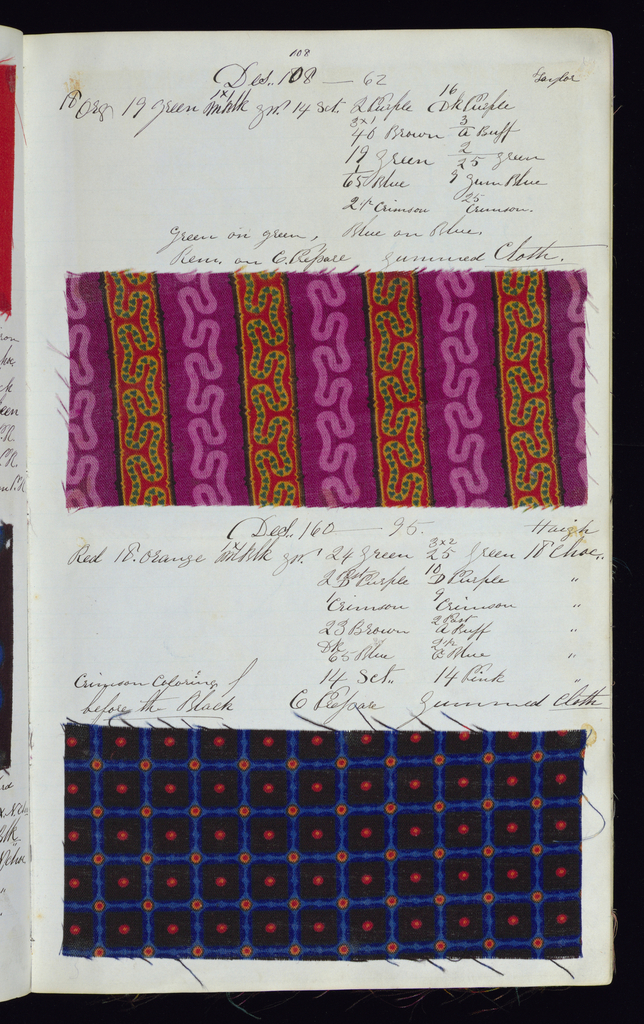 108
Des. 108 — 62 Taylor
18 Org 19 green 14 Sct. 2 Purple 16 Dk Purple
3x1 40 Brown 3 a Buff
19 green 2 25 green
1 65 Blue 9 Gum Blue
Crimson 25 Crimson.
Green on green, Blue on Blue.
on C. Prepare gummed Cloth.
Des. 160 — 95. Haigh
Red 18. Orange 24 green 3x2 25 green 18 Choc.
2 Purple 10 D Purple "
1 Crimson 9 Crimson "
23 Brown 2 Part a Buff "
Dk 65 Blue Blue "
14 Sct. 14 Pink "
Crimson Coloring
before the Black C Prepare gummed Cloth